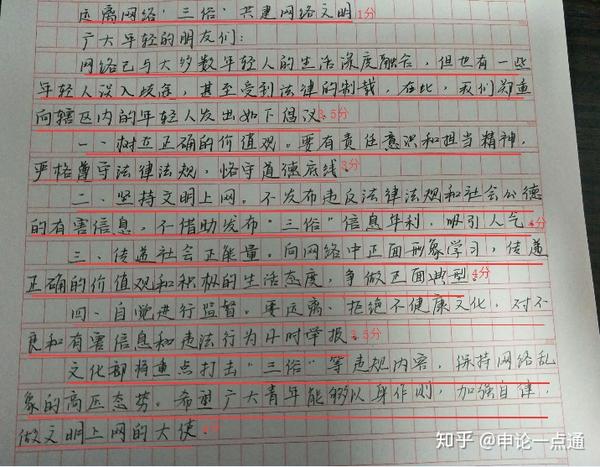 远离网络“三俗”共建网络文明 1分
广大年轻的朋友们:
网络已与大多数年轻人的生活深度融合,但也有一些
年轻人误入歧途,甚至受到法律的制裁,在此,我们郑重
向辖区内的年轻人发出如下倡议。3.5分
一、树立正确的价值观。要有责任意识和担当精神,
严格遵守法律法规,恪守道德底线。3分
二、坚持文明上网。不发布违反法律法规和社会公德
的有害信息,不借助发布“三俗”信息牟利,吸引人气。4分
三、传递社会正能量。向网络中正面形象学习,传递
正确的价值观和积极的生活态度,争做正面典型。4分
四、自觉进行监督。要远离、拒绝不健康文化,对不
良和有害信息和违法行为及时举报。3.5分
文化部将重点打击“三俗”等违规内容,保持网络乱
象的高压态势。希望广大青年能够以身作则,加强自律,
做文明上网的大使。
知乎 @申论一点通